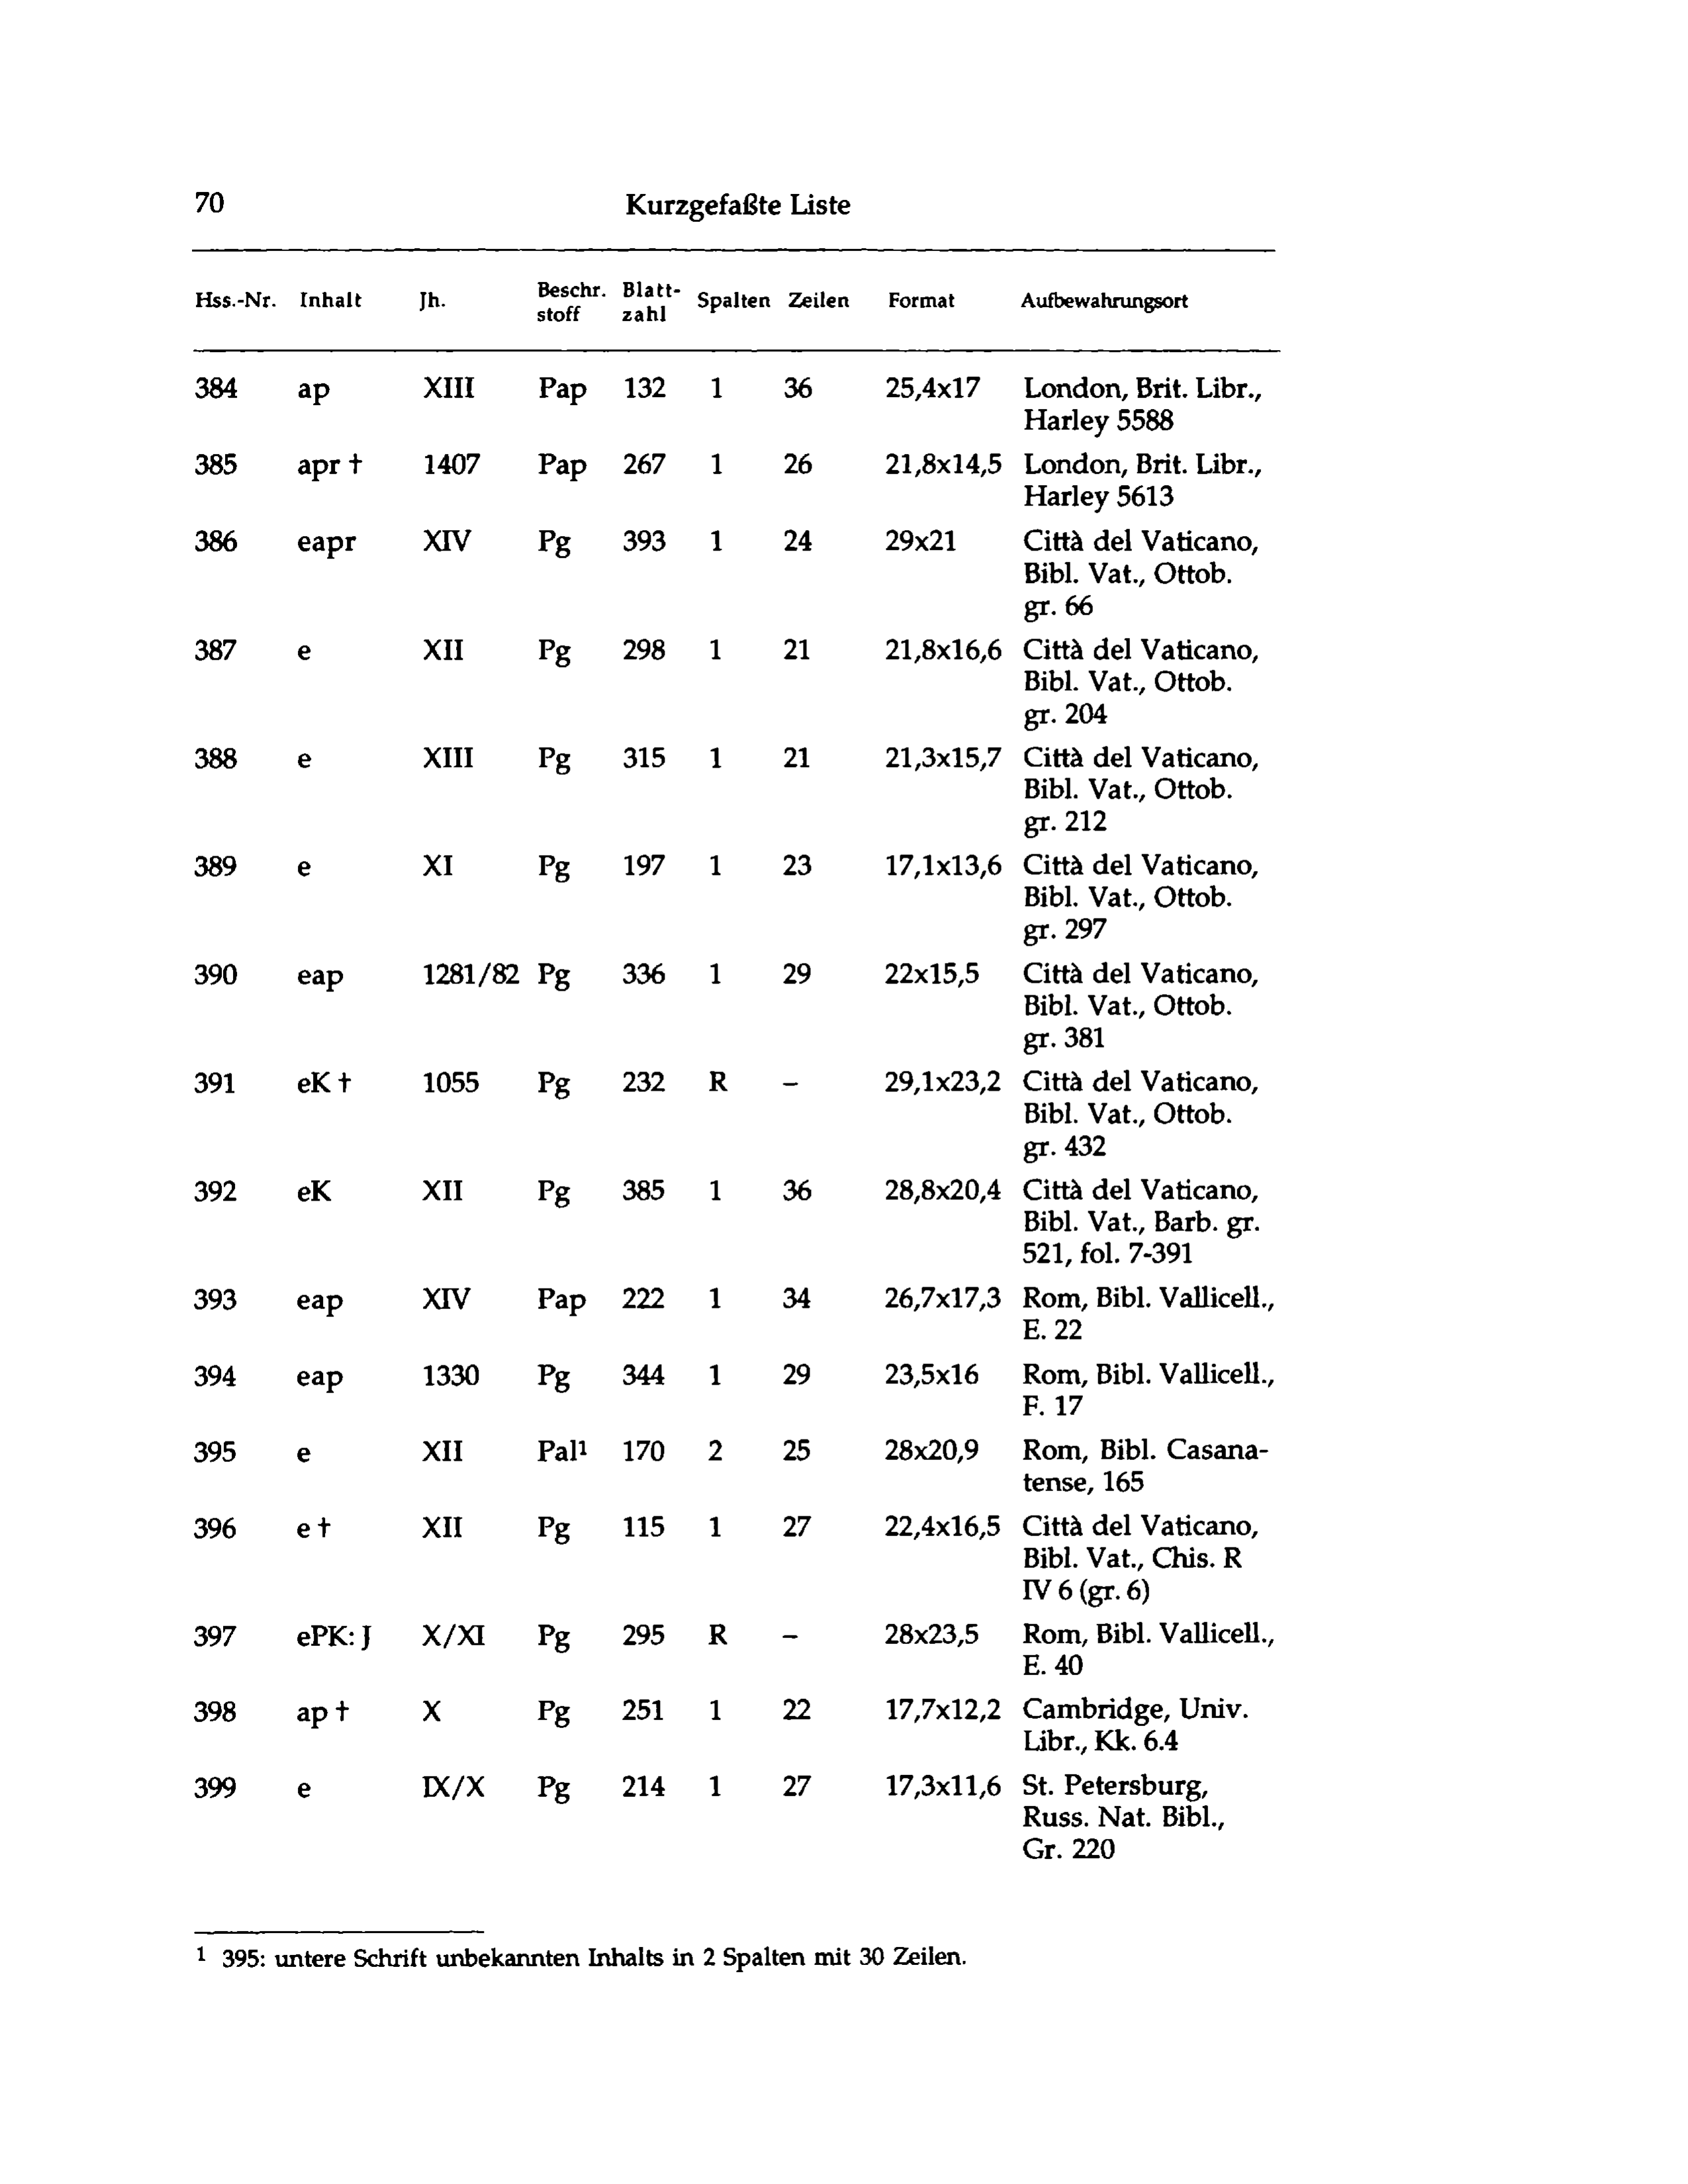 70 Kurzgefaßte Liste
Hss.-Nr. Inhalt Jh. Beschr. stoff Blatt- zahl Spalten Zeilen Format Aufbewahrungsort
384 ap XIII Pap 132 1 36 25,4x17 London, Brit. Libr.,
Harley 5588
385 apr † 1407 Pap 267 1 26 21,8x14,5 London, Brit. Libr.,
Harley 5613
386 eapr XIV Pg 393 1 24 29x21 Città del Vaticano,
Bibl. Vat., Ottob.
gr. 66
387 e XII Pg 298 1 21 21,8x16,6 Città del Vaticano,
Bibl. Vat., Ottob.
gr. 204
388 e XIII Pg 315 1 21 21,3x15,7 Città del Vaticano,
Bibl. Vat., Ottob.
gr. 212
389 e XI Pg 197 1 23 17,1x13,6 Città del Vaticano,
Bibl. Vat., Ottob.
gr. 297
390 eap 1281/82 Pg 336 1 29 22x15,5 Città del Vaticano,
Bibl. Vat., Ottob.
gr. 381
391 eK † 1055 Pg 232 R – 29,1x23,2 Città del Vaticano,
Bibl. Vat., Ottob.
gr. 432
392 eK XII Pg 385 1 36 28,8x20,4 Città del Vaticano,
Bibl. Vat., Barb. gr.
521, fol. 7-391
393 eap XIV Pap 222 1 34 26,7x17,3 Rom, Bibl. Vallicell.,
E. 22
394 eap 1330 Pg 344 1 29 23,5x16 Rom, Bibl. Vallicell.,
F. 17
395 e XII Pal¹ 170 2 25 28x20,9 Rom, Bibl. Casana-
tense, 165
396 e † XII Pg 115 1 27 22,4x16,5 Città del Vaticano,
Bibl. Vat., Chis. R
IV 6 (gr. 6)
397 ePK: J X/XI Pg 295 R – 28x23,5 Rom, Bibl. Vallicell.,
E. 40
398 ap † X Pg 251 1 22 17,7x12,2 Cambridge, Univ.
Libr., Kk. 6.4
399 e IX/X Pg 214 1 27 17,3x11,6 St. Petersburg,
Russ. Nat. Bibl.,
Gr. 220
¹ 395: untere Schrift unbekannten Inhalts in 2 Spalten mit 30 Zeilen.